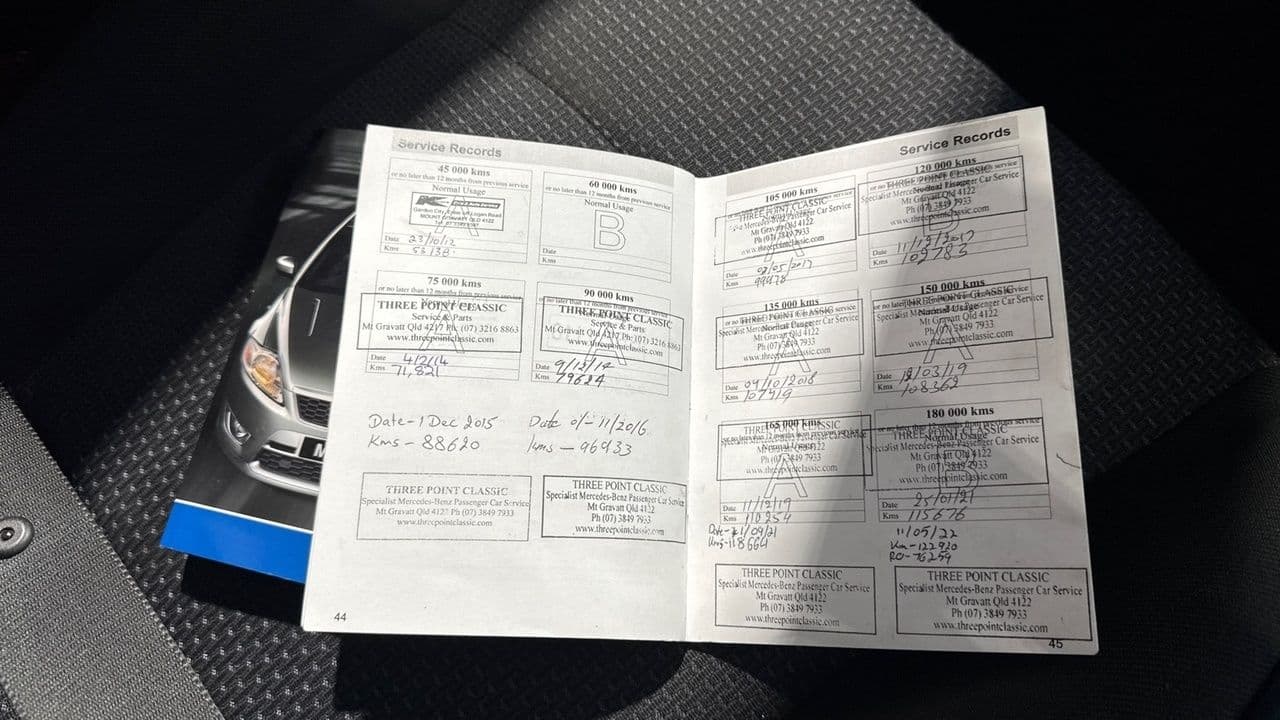 Service Records
45 000 kms
or no later than 12 months from previous service
Normal Usage
MOUNT GRAVATT QLD 4122
Date 23/10/12
Kms
60 000 kms
or no later than 12 months from previous service
Normal Usage
B
Date
Kms
75 000 kms
or no later than 12 months from previous service
THREE POINT CLASSIC
Service & Parts
Mt Gravatt Qld 4217 Ph: (07) 3216 8863
www.threepointclassic.com
A
Date 4/2/14
Kms 71,821
90 000 kms
or no later than 12 months from previous service
THREE POINT CLASSIC
Service & Parts
Mt Gravatt Qld 4217 Ph: (07) 3216 8863
www.threepointclassic.com
A
Date 9/12/14
Kms 79624
Date - 1 Dec 2015
Kms - 88620
Date 01-11/2016
kms - 96933
THREE POINT CLASSIC
Specialist Mercedes-Benz Passenger Car Service
Mt Gravatt Qld 4122 Ph (07) 3849 7933
www.threepointclassic.com
THREE POINT CLASSIC
Specialist Mercedes-Benz Passenger Car Service
Mt Gravatt Qld 4122
Ph (07) 3849 7933
www.threepointclassic.com
44
Service Records
105 000 kms
THREE POINT CLASSIC
Specialist Mercedes-Benz Passenger Car Service
Mt Gravatt Qld 4122
Ph (07) 3849 7933
www.threepointclassic.com
Date 02/05/2017
Kms 99478
120 000 kms
THREE POINT CLASSIC
Specialist Mercedes-Benz Passenger Car Service
Mt Gravatt Qld 4122
Ph (07) 3849 7933
www.threepointclassic.com
Date 11/12/2017
Kms 102785
135 000 kms
THREE POINT CLASSIC
Specialist Mercedes-Benz Passenger Car Service
Mt Gravatt Qld 4122
Ph (07) 3849 7933
www.threepointclassic.com
Date 04/10/2018
Kms 107419
150 000 kms
THREE POINT CLASSIC
Specialist Mercedes-Benz Passenger Car Service
Mt Gravatt Qld 4122
Ph (07) 3849 7933
www.threepointclassic.com
A
Date 18/03/19
Kms 108362
165 000 kms
THREE POINT CLASSIC
Mt Gravatt Qld 4122
Ph (07) 3849 7933
www.threepointclassic.com
A
Date 11/12/19
Kms 110254
180 000 kms
THREE POINT CLASSIC
Specialist Mercedes-Benz Passenger Car Service
Mt Gravatt Qld 4122
Ph (07) 3849 7933
www.threepointclassic.com
Date 25/01/21
Kms 115676
Kms-118664
11/05/22
Km-122920
RO-76259
THREE POINT CLASSIC
Specialist Mercedes-Benz Passenger Car Service
Mt Gravatt Qld 4122
Ph (07) 3849 7933
www.threepointclassic.com
THREE POINT CLASSIC
Specialist Mercedes-Benz Passenger Car Service
Mt Gravatt Qld 4122
Ph (07) 3849 7933
www.threepointclassic.com
45